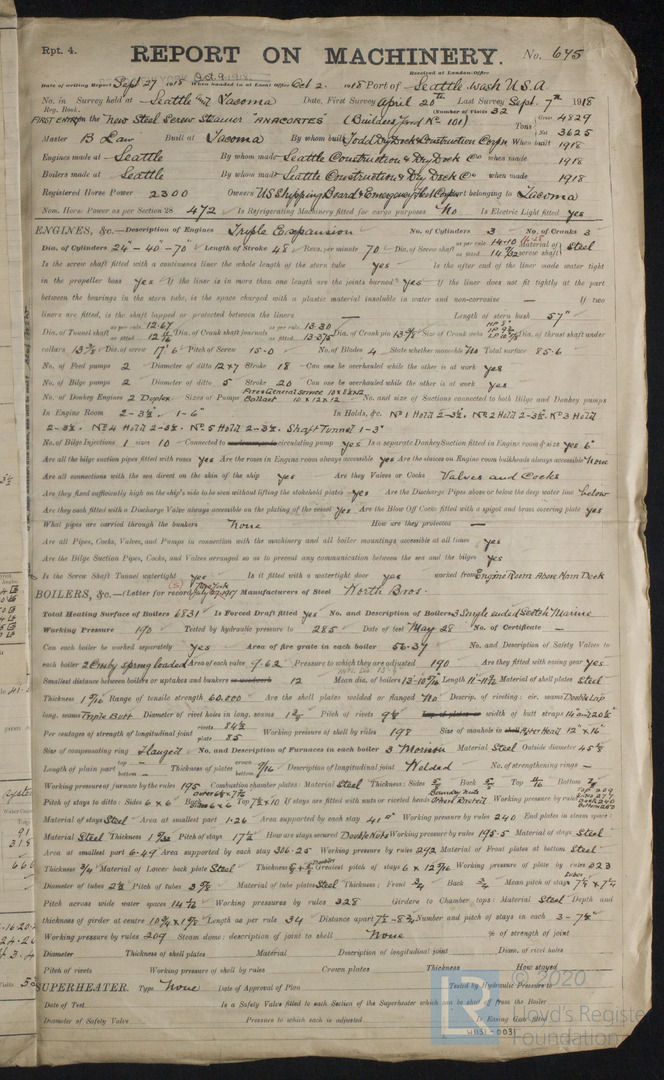 Rpt. 4.
REPORT ON MACHINERY. No. 675
Received at London Office
Oct. 9. 1918
Date of writing Report Sept 27 1918 When handed in at Local Office Oct 2. 1918 Port of Seattle. Wash U.S.A
No. in Reg. Book. Survey held at Seattle & Tacoma Date, First Survey April 20th Last Survey Sept. 7th 1918
(Number of Visits 32
FIRST ENTRY on the New Steel Screw Steamer "ANACORTES" (Builders Yard No 101) Tons Gross 4829 Net 3625
Master B Law Built at Tacoma By whom built Todd Dry Dock & Construction Corpn When built 1918
Engines made at Seattle By whom made Seattle Construction & Dry Dock Co when made 1918
Boilers made at Seattle By whom made Seattle Construction & Dry Dock Co when made 1918
Registered Horse Power 2300 Owners US Shipping Board & Emergency Fleet Corp Port belonging to Tacoma
Nom. Horse Power as per Section 28 472 Is Refrigerating Machinery fitted for cargo purposes No Is Electric Light fitted yes
ENGINES, &c.—Description of Engines Triple Expansion No. of Cylinders 3 No. of Cranks 3
Dia. of Cylinders 24" - 40" - 70" Length of Stroke 48 Revs. per minute 70 Dia. of Screw shaft as per rule 14.10 as fitted Material of screw shaft Steel
Is the screw shaft fitted with a continuous liner the whole length of the stern tube yes Is the after end of the liner made water tight
in the propeller boss yes If the liner is in more than one length are the joints burned yes If the liner does not fit tightly at the part
between the bearings in the stern tube, is the space charged with a plastic material insoluble in water and non-corrosive — If two
liners are fitted, is the shaft lapped or protected between the liners — Length of stern bush 57"
Dia. of Tunnel shaft as per rule 12.67 as fitted Dia. of Crank shaft journals as per rule 13.30 as fitted 13.375 Dia. of Crank pin 13 3/8 Size of Crank webs Dia. of thrust shaft under
collars 13 3/8 Dia. of screw 17' 6 Pitch of Screw 15.0 No. of Blades 4 State whether moveable No Total surface 85.6
No. of Feed pumps 2 Diameter of ditto 12x7 Stroke 18 Can one be overhauled while the other is at work yes
No. of Bilge pumps 2 Diameter of ditto 5 Stroke 20 Can one be overhauled while the other is at work yes
No. of Donkey Engines 2 Duplex Sizes of Pumps Fire & General Service 10x8x12 Ballast 10x12x12 No. and size of Suctions connected to both Bilge and Donkey pumps
In Engine Room 2-3½. 1-6" In Holds, &c. No 1 Hold 2-3½. No 2 Hold 2-3½. No 3 Hold
2-3½. No 4 Hold 2-3½. No 5 Hold 2-3½. Shaft Tunnel 1-3"
No. of Bilge Injections 1 sizes 10 Connected to circulating pump yes Is a separate Donkey Suction fitted in Engine room & size yes 6"
Are all the bilge suction pipes fitted with roses yes Are the roses in Engine room always accessible yes Are the sluices on Engine room bulkheads always accessible None
Are all connections with the sea direct on the skin of the ship yes Are they Valves or Cocks Valves and Cocks
Are they fixed sufficiently high on the ship's side to be seen without lifting the stokehold plates yes Are the Discharge Pipes above or below the deep water line below
Are they each fitted with a Discharge Valve always accessible on the plating of the vessel yes Are the Blow Off Cocks fitted with a spigot and brass covering plate yes
What pipes are carried through the bunkers None How are they protected —
Are all Pipes, Cocks, Valves, and Pumps in connection with the machinery and all boiler mountings accessible at all times yes
Are the Bilge Suction Pipes, Cocks, and Valves arranged so as to prevent any communication between the sea and the bilges yes
Is the Screw Shaft Tunnel watertight yes Is it fitted with a watertight door yes worked from Engine Room Above Main Deck
BOILERS, &c.—(Letter for record (S) Manufacturers of Steel Worth Bros.
Total Heating Surface of Boilers 6831 Is Forced Draft fitted yes No. and Description of Boilers 3 Single ended Scotch Marine
Working Pressure 190 Tested by hydraulic pressure to 285 Date of test May 28 No. of Certificate —
Can each boiler be worked separately yes Area of fire grate in each boiler 56.37 No. and Description of Safety Valves to
each boiler 2 Crosby spring loaded Area of each valve 9.62 Pressure to which they are adjusted 190 Are they fitted with easing gear yes
Smallest distance between boilers or uptakes and bunkers 12 Mean dia. of boilers Length Material of shell plates Steel
Thickness 1 9/16 Range of tensile strength 60.000 Are the shell plates welded or flanged No Descrip. of riveting: cir. seams Double Lap
long. seams Triple Butt Diameter of rivet holes in long. seams Pitch of rivets 9½ width of butt straps
Per centages of strength of longitudinal joint rivets plate 85 Working pressure of shell by rules 198 Size of manhole in 12" x 16"
Size of compensating ring Flanged No. and Description of Furnaces in each boiler 3 Morison Material Steel Outside diameter
Length of plain part top — bottom — Thickness of plates crown bottom 9/16 Description of longitudinal joint Welded No. of strengthening rings —
Working pressure of furnace by the rules 195 Combustion chamber plates: Material Steel Thickness: Sides Back Top 11/16 Bottom
Pitch of stays to ditto: Sides 6x6 Back Top 7½x10 If stays are fitted with nuts or riveted heads Working pressure by rules
Material of stays Steel Area at smallest part 1.26 Area supported by each stay 41 Working pressure by rules 240 End plates in steam space:
Material Steel Thickness Pitch of stays 17½ How are stays secured Double Nuts Working pressure by rules 195.5 Material of stays Steel
Area at smallest part 6.49 Area supported by each stay 306.25 Working pressure by rules 242 Material of Front plates at bottom Steel
Thickness ¾" Material of Lower back plate Steel Thickness Greatest pitch of stays Working pressure of plate by rules 323
Diameter of tubes 2½ Pitch of tubes Material of tube plates Steel Thickness: Front ¾ Back ¾ Mean pitch of stays
Pitch across wide water spaces 14½ Working pressures by rules 328 Girders to Chamber tops: Material Steel Depth and
thickness of girder at centre Length as per rule 34 Distance apart Number and pitch of stays in each
Working pressure by rules 209 Steam dome: description of joint to shell None % of strength of joint
Diameter Thickness of shell plates Material Description of longitudinal joint Diam. of rivet holes
Pitch of rivets Working pressure of shell by rules Crown plates Thickness How stayed
SUPERHEATER. Type None Date of Approval of Plan Tested by Hydraulic Pressure to
Date of Test Is a Safety Valve fitted to each Section of the Superheater which can be shut off from the Boiler
Diameter of Safety Valve Pressure to which each is adjusted Is Easing Gear fitted
© 2020
Lloyd's Register
Foundation